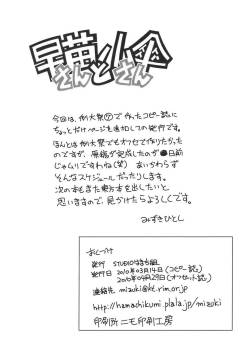 早苗さんと小傘さん
今回は、例大祭⑦で作ったコピー誌に
ちょっとだけページを追加しての発行です。
ほんとは例大祭でもオフセで作りたかった
のですが、原稿が完成したのが●日前
じゃムリですわね(笑) あいかわらず
そんなスケジュールだったりします。
次の本もまた東方本を出したいと
思いますので、見かけたらよろしくです。
みずきひとし
おくづけ
発行 STUDIOはまち組
発行日 2010年03月14日(コピー誌)
2010年09月29日(オフセット誌)
連絡先 mizuki@ke.rim.or.jp
http://hamachikumi.plala.jp/mizuki
印刷所 ニモ印刷工房